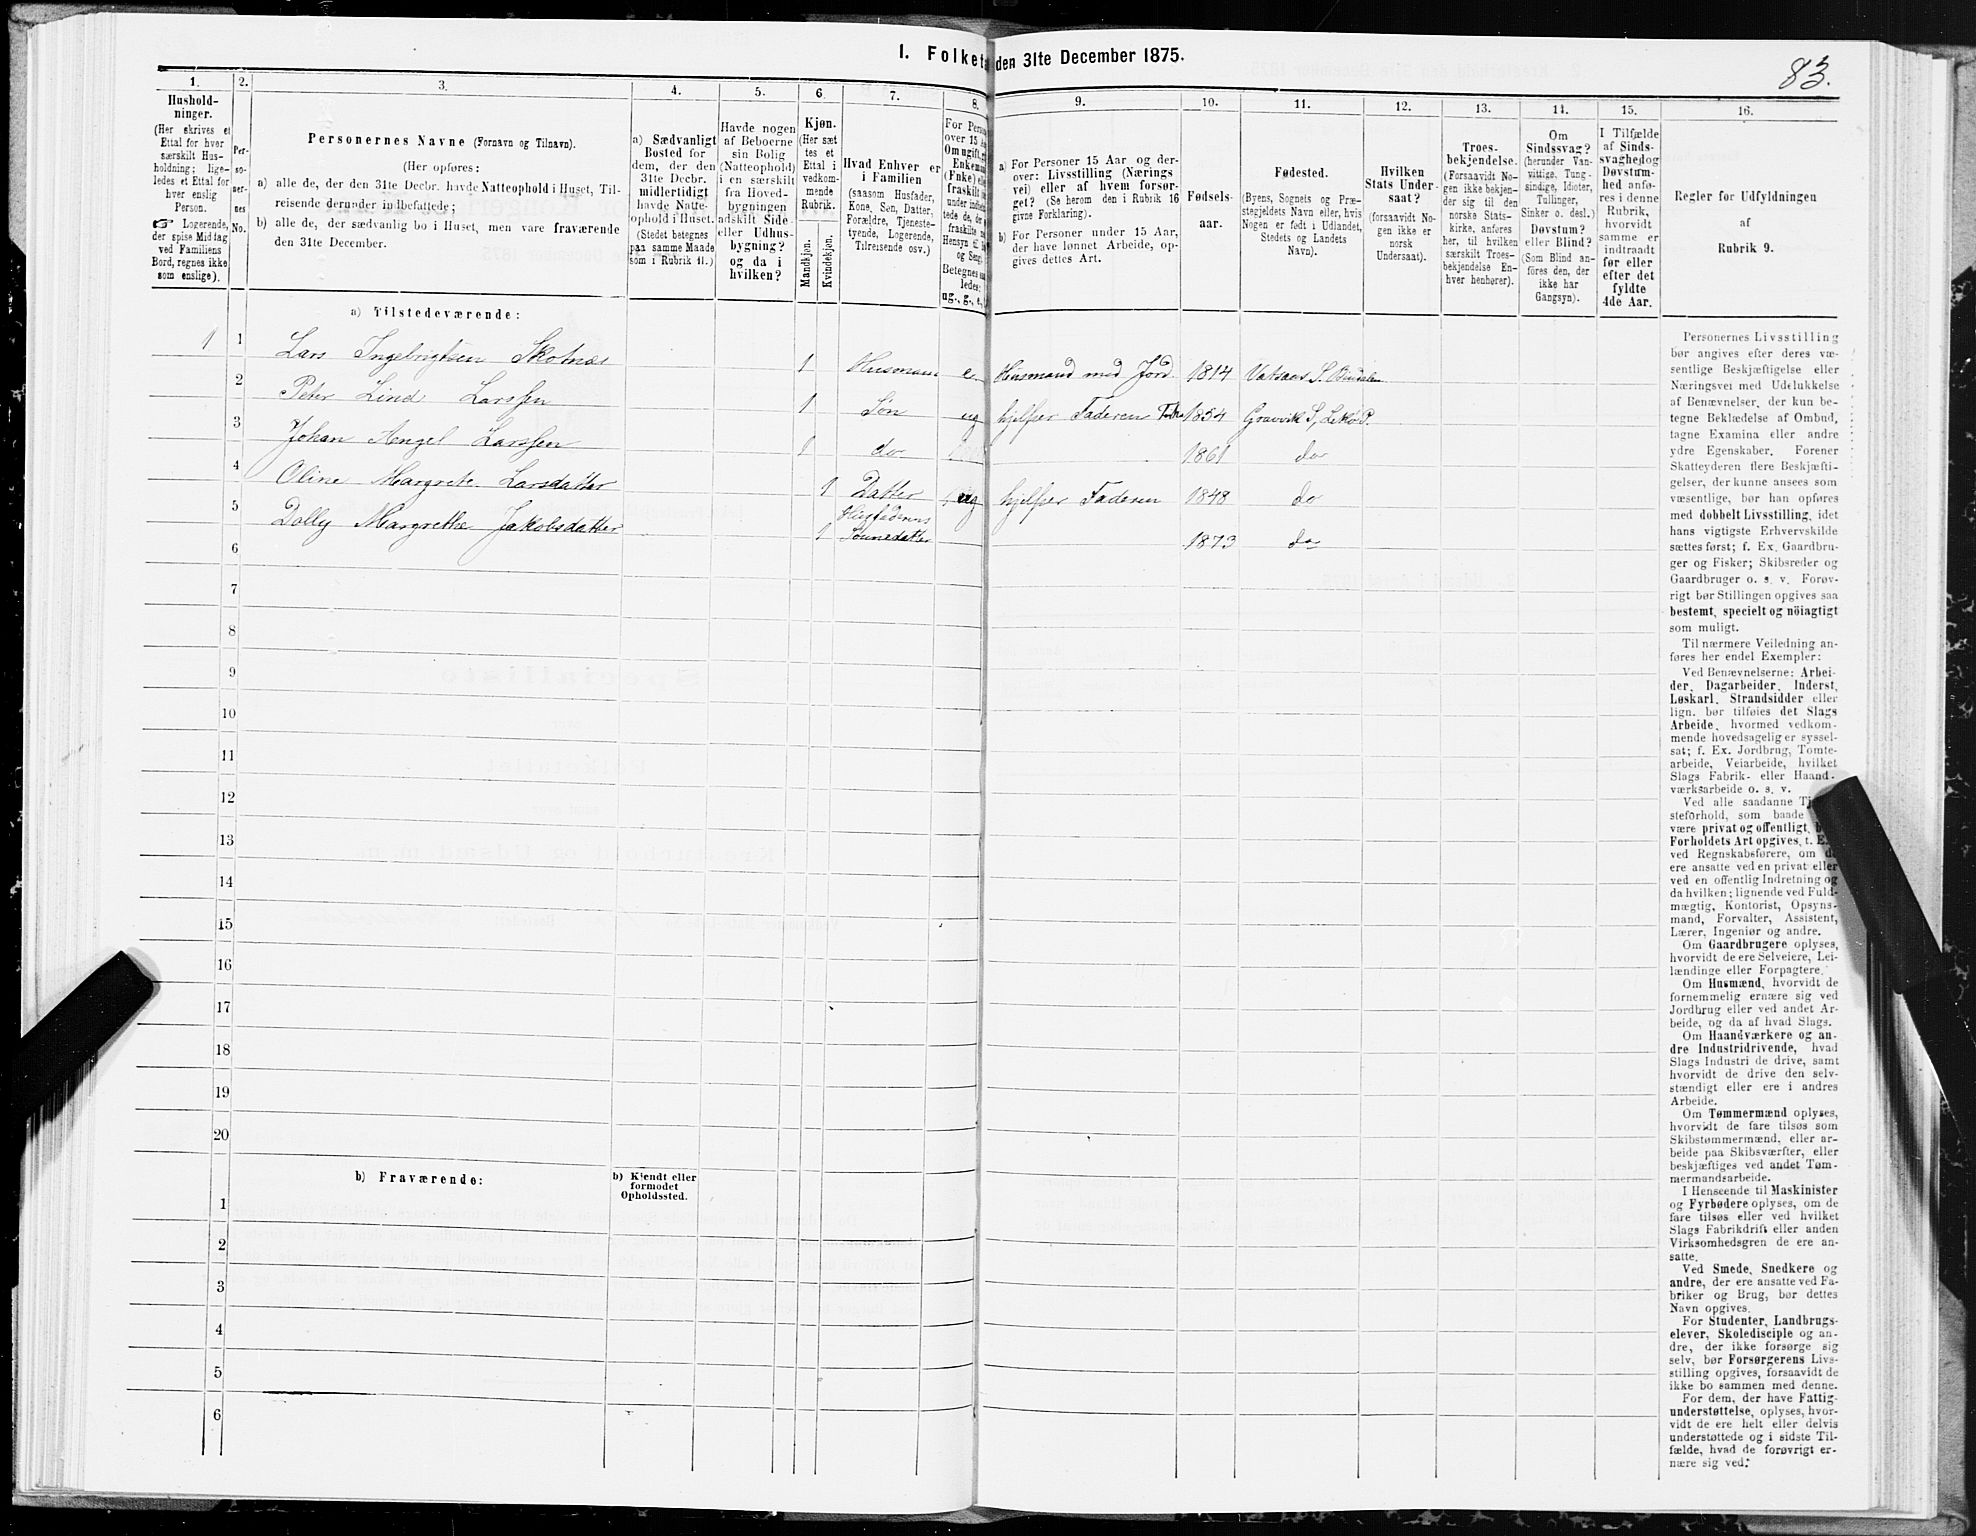 I. Folketæ den 31te December 1875.
83.
1.
Hushold-
ninger.
(Her skrives et
Ettal for hver
særskilt Hus-
holdning; lige-
ledes et Ettal for
hver enslig
Person.
☞ Logerende,
der spise Middag
ved Familiens
Bord, regnes ikke
som enslige).
2.
Per-
so-
ner-
nes
No.
3.
Personernes Navne (Fornavn og Tilnavn).
(Her opføres:
a) alle de, der den 31te Decbr. havde Natteophold i Huset, Til-
reisende derunder indbefattede;
b) alle de, der sædvanlig bo i Huset, men vare fraværende
den 31te December.
4.
a) Sædvanligt
Bosted for
dem, der den
31te Decbr.
midlertidigt
havde Natte-
ophold i Huset.
(Stedet betegnes
paa samme Maade
som i Rubrik 11.)
5.
Havde nogen
af Beboerne
sin Bolig
(Natteophold)
i en særskilt
fra Hoved-
bygningen
adskilt Side-
eller Udhus-
bygning?
og da i
hvilken?
6.
Kjøn.
(Her sæt-
tes et
Ettal i
vedkom-
mende
Rubrik.
Mandkjøn.
Kvindekjøn.
7.
Hvad Enhver er
i Familien
(saasom Husfader,
Kone, Søn, Datter,
Forældre, Tjeneste-
tyende, Logerende,
Tilreisende osv.)
8.
For Perso
over 15 A
Om ugift, g
Enkem
(Fnke) el
fraskilt
under indbe
tede de, der
fraskilte
Hensyn til B
og Seng.
Betegnes sa
ledes:
ug., g., e.,
9.
a) For Personer 15 Aar og der-
over: Livsstilling (Nærings
vei) eller af hvem forsør-
get? (Se herom den i Rubrik 16
givne Forklaring).
b) For Personer under 15 Aar,
der have lønnet Arbeide, op-
gives dettes Art.
10.
Fødsels-
aar.
11.
Fødested.
(Byens, Sognets og Præ-
stegjeldets Navn eller, hvis
Nogen er født i Udlandet,
Stedets og Landets
Navn).
12.
Hvilken
Stats Under-
saat?
(forsaavidt No-
gen ikke er
norsk
Undersaat).
13.
Troes-
bekjendelse.
(Forsaavidt No-
gen ikke bekjen-
der sig til den
norske Stats-
kirke, anføres
her, til hvilken
særskilt Troes-
bekjendelse En-
hver henhører).
14.
Om
Sindssvag?
(herunder Van-
vittige, Tung-
sindige, Idioter,
Tullinger,
Sinker o. desl.)
Døvstum?
eller Blind?
(Som Blind an-
føres den, der
ikke har
Gangsyn).
15.
I Tilfælde
af Sinds-
svaghed og
Døvstum-
hed anfø-
res i denne
Rubrik,
hvorvidt
samme er
indtraadt
før eller
efter det
fyldte
4de Aar.
16.
Regler for Udfyldningen
af
Rubrik 9.
a) Tilstedeværende:
1 1 Lars Ingebrigtsen Skotnæs 1 Husmand e Husmand med Jord 1814 Vatsaas S. Bindalen
2 Peter Lind Larssen 1 Søn ug hjelper Faderen 1854 Gravvik S, Lekø P.
3 Johan Angel Larssen 1 do 1861 do
4 Oline Margrete Larsdatter 1 Datter ug hjelper Faderen 1848 do
5 Dolly Margrethe Jakobsdatter 1 Husfaderens
Sønnedatter 1873 do
6
7
8
9
10
11
12
13
14
15
16
17
18
19
20
b) Fraværende:
b) Kjendt eller
formodet
Opholdssted.
1
2
3
4
5
6
Personernes Livsstilling
bør angives efter deres væ-
sentlige Beskjæftigelse eller
Næringsvei med Udelukkelse
af Benævnelser, der kun be-
tegne Beklædelse af Ombud,
tagne Examina eller andre
ydre Egenskaber. Forener
Skatteyderen flere Beskjæfti-
gelser, der kunne ansees som
væsentlige, bør han opføres
med dobbelt Livsstilling, idet
hans vigtigste Erhvervskilde
sættes først; f. Ex. Gaardbru-
ger og Fisker; Skibsreder og
Gaardbruger o. s. v. Forøv-
rigt bør Stillingen opgives saa
bestemt, specielt og nöiagtigt
som muligt.
Til nærmere Veiledning an-
føres her endel Exempler:
Ved Benævnelserne: Arbei-
der, Dagarbeider, Inderst,
Løskarl, Strandsidder eller
lign. bør tilføies det Slags
Arbeide, hvormed vedkom-
mende hovedsagelig er syssel-
sat; f. Ex. Jordbrug, Tomte-
arbeide, Veiarbeide, hvilket
Slags Fabrik- eller Haand-
værksarbeide o. s. v.
Ved alle saadanne Tj
steforhold, som baade
være privat og offentligt, b
Forholdets Art opgives, t. E
ved Regnskabsførere, om d
ere ansatte ved en privat eller
ved en offentlig Indretning og
da hvilken; lignende ved Fuld-
mægtig, Kontorist, Opsyns-
mand, Forvalter, Assistent,
Lærer, Ingeniør og andre.
Om Gaardbrugere oplyses,
hvorvidt de ere Selveiere, Lei-
lændinge eller Forpagtere.
Om Husmænd, hvorvidt de
fornemmelig ernære sig ved
Jordbrug eller ved andet Ar-
beide, og da af hvad Slags.
Om Haandværkere og an-
dre Industridrivende, hvad
Slags Industri de drive, samt
hvorvidt de drive den selv-
stændigt eller ere i andres
Arbeide.
Om Tømmermænd oplyses,
hvorvidt de fare tilsøs som
Skibstømmermænd, eller ar-
beide paa Skibsværfter, eller
beskjæftiges ved andet Tøm-
mermandsarbeide.
I Henseende til Maskinister
og Fyrbødere oplyses, om de
fare tilsøs eller ved hvilket
Slags Fabrikdrift eller anden
Virksomhedsgren de ere an-
satte.
Ved Smede, Snedkere og
andre, der ere ansatte ved Fa-
briker og Brug, bør dettes
Navn opgives.
For Studenter, Landbrugs-
elever, Skoledisciple og an-
dre, der ikke forsørge sig
selv, bør Forsørgerens Livs-
stilling opgives, forsaavidt de
ikke bo sammen med denne.
For dem, der have Fattig-
understøttelse, oplyses, hvor-
vidt de ere helt eller delvis
understøttede og i sidste Til-
fælde, hvad de forøvrigt er-
nære sig ved.